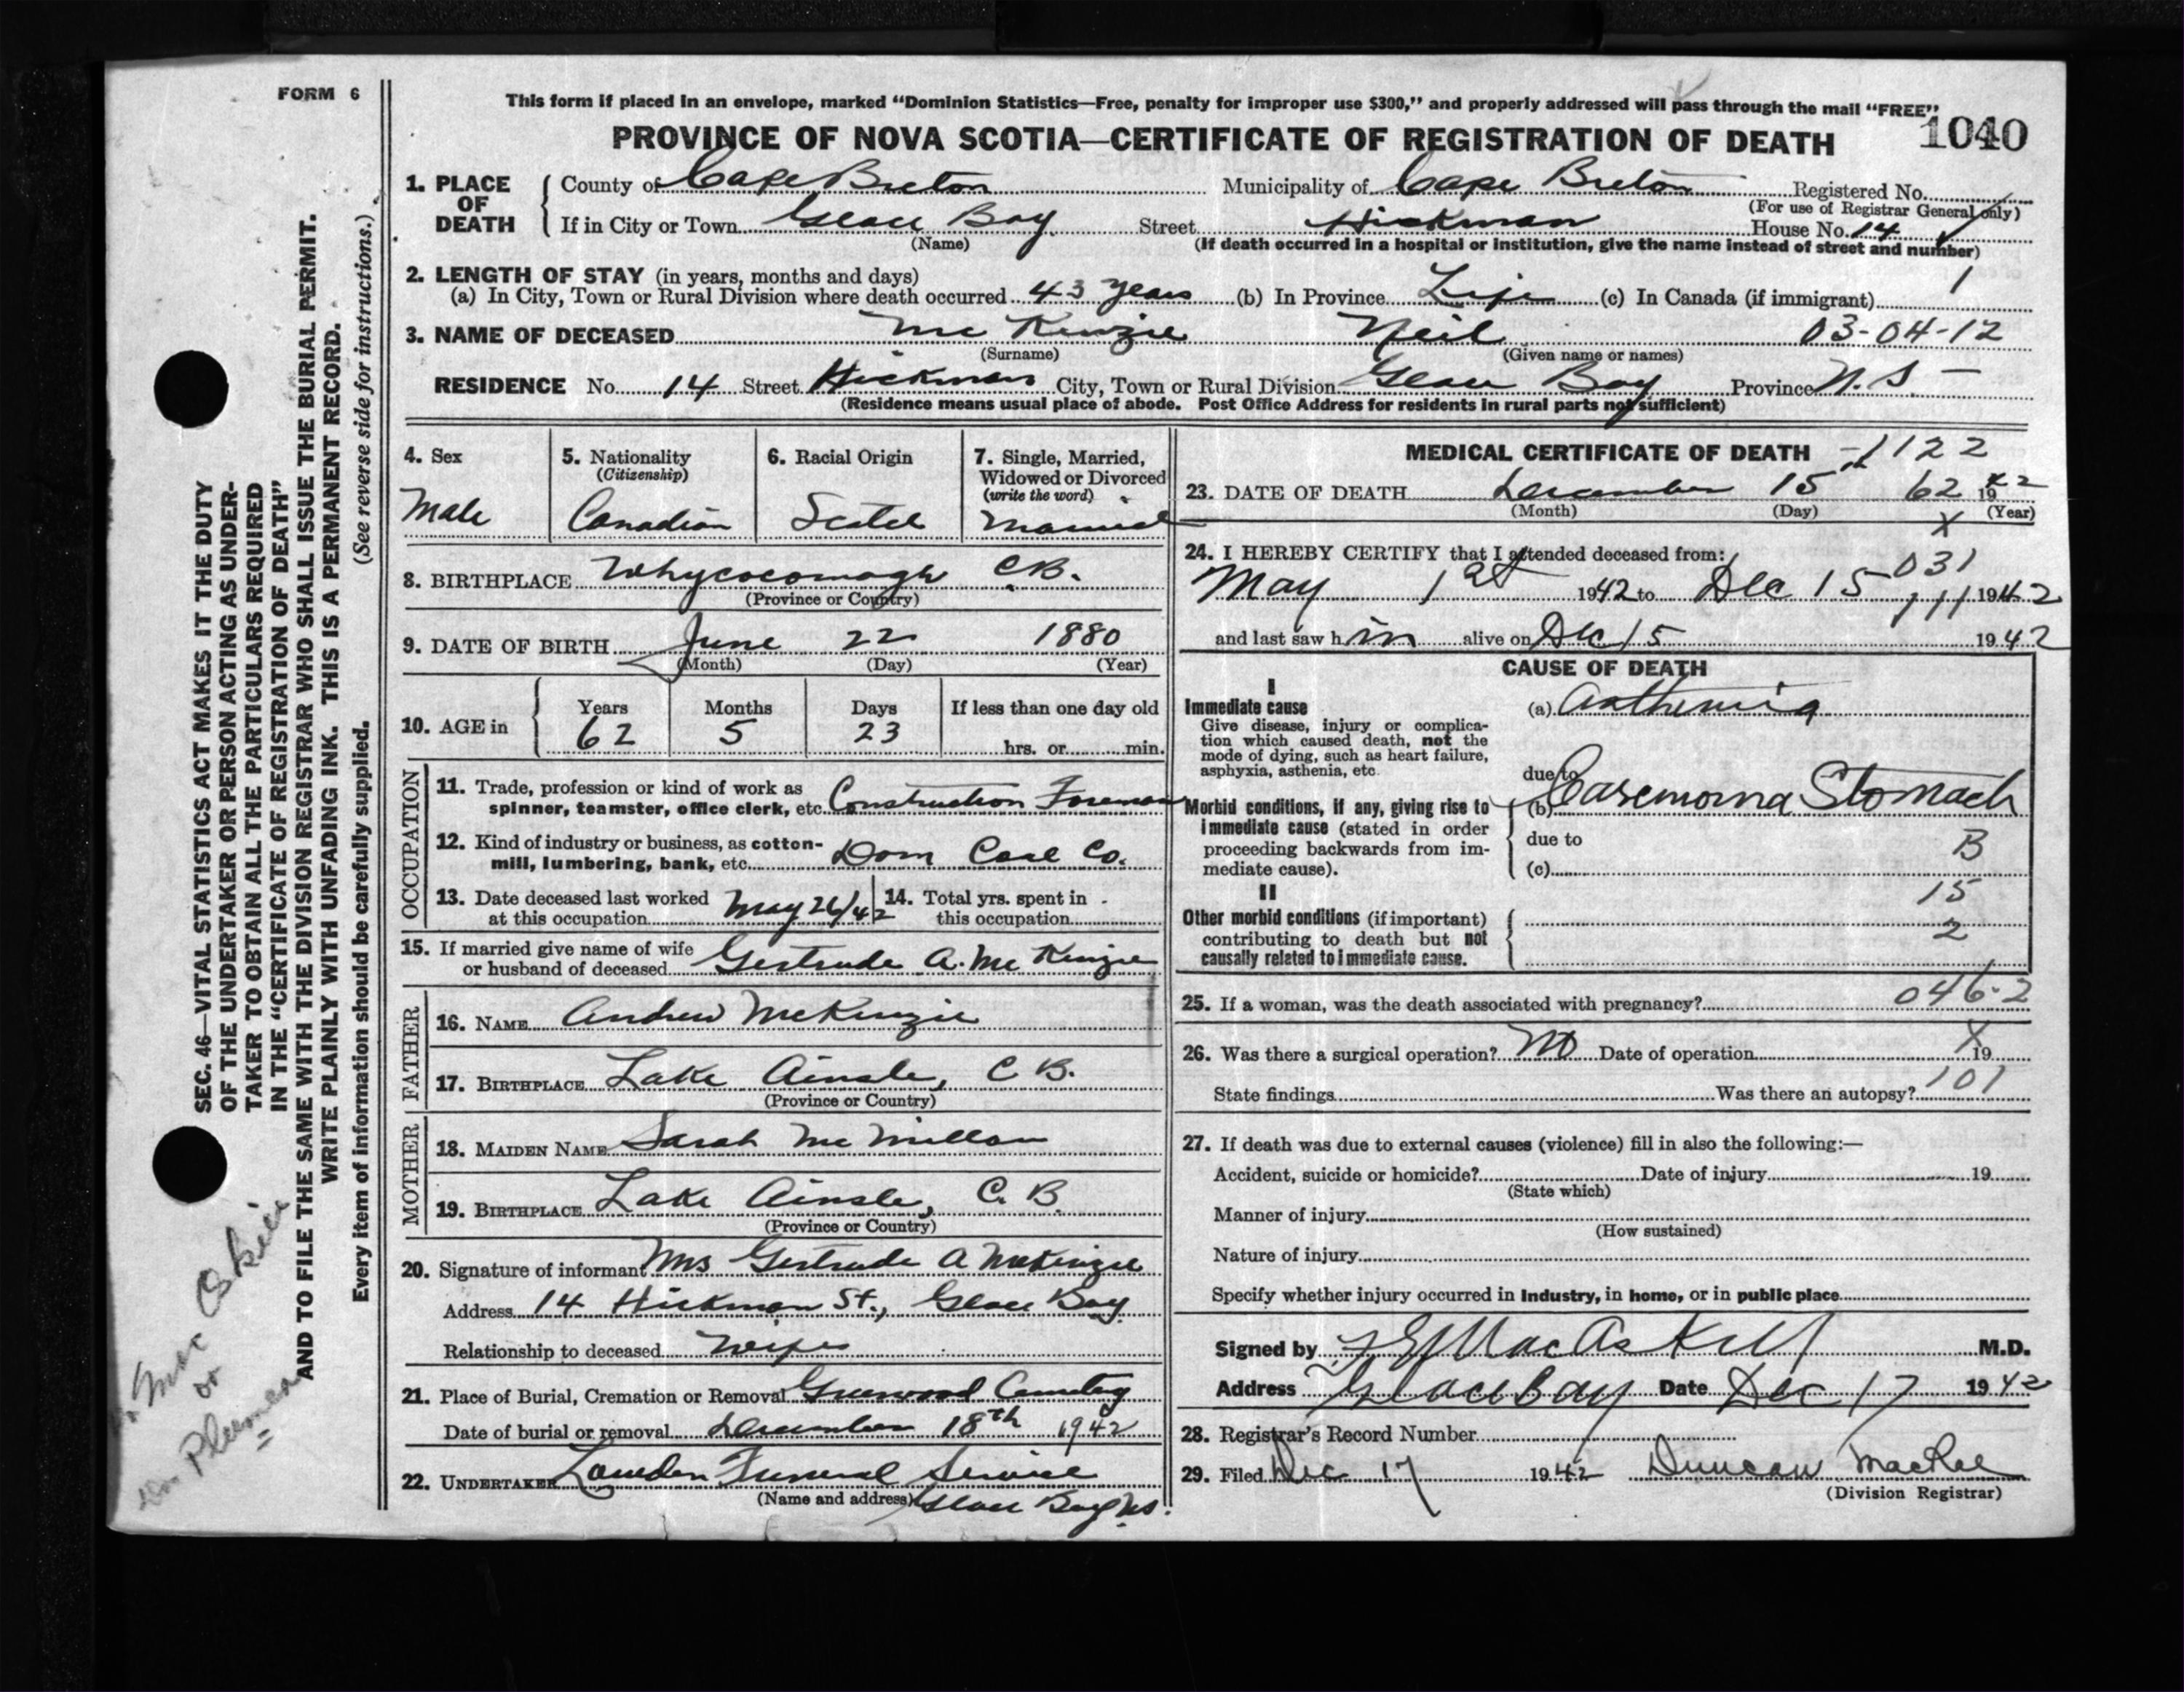 FORM 6
This form if placed in an envelope, marked “Dominion Statistics—Free, penalty for improper use $300,” and properly addressed will pass through the mail “FREE”
PROVINCE OF NOVA SCOTIA—CERTIFICATE OF REGISTRATION OF DEATH 1040
1. PLACE OF DEATH County of Cape Breton Municipality of Cape Breton Registered No.
(For use of Registrar General only)
If in City or Town Glace Bay Street Hickman House No. 14
(Name) (If death occurred in a hospital or institution, give the name instead of street and number)
2. LENGTH OF STAY (in years, months and days)
(a) In City, Town or Rural Division where death occurred 43 years (b) In Province Life (c) In Canada (if immigrant) 1
3. NAME OF DECEASED Mc Kenzie Neil 03-04-12
(Surname) (Given name or names)
RESIDENCE No. 14 Street Hickman City, Town or Rural Division Glace Bay Province N.S –
(Residence means usual place of abode. Post Office Address for residents in rural parts not sufficient)
4. Sex 5. Nationality 6. Racial Origin 7. Single, Married,
(Citizenship) Widowed or Divorced
(write the word)
Male Canadian Scotch Married
8. BIRTHPLACE Whycocomagh C.B.
(Province or Country)
9. DATE OF BIRTH June 22 1880
(Month) (Day) (Year)
10. AGE in Years Months Days If less than one day old
62 5 23 hrs. or min.
OCCUPATION
11. Trade, profession or kind of work as
spinner, teamster, office clerk, etc. Construction Foreman
12. Kind of industry or business, as cotton-
mill, lumbering, bank, etc. Dom Coal Co.
13. Date deceased last worked at this occupation May 26/42 14. Total yrs. spent in this occupation
15. If married give name of wife
or husband of deceased Gertrude A. Mc Kenzie
FATHER
16. NAME Andrew McKenzie
17. BIRTHPLACE Lake Ainsle, C B.
(Province or Country)
MOTHER
18. MAIDEN NAME Sarah Mc Millan
19. BIRTHPLACE Lake Ainsle, C. B.
(Province or Country)
20. Signature of informant Mrs Gertrude A McKenzie
Address 14 Hickman St., Glace Bay
Relationship to deceased Wife
21. Place of Burial, Cremation or Removal Greenwood Cemetery
Date of burial or removal December 18th 1942
22. UNDERTAKER Lowden Funeral Service
(Name and address) Glace Bay NS.
MEDICAL CERTIFICATE OF DEATH -1122
23. DATE OF DEATH December 15th 62 1942
(Month) (Day) X (Year)
24. I HEREBY CERTIFY that I attended deceased from: 031
May 1st 1942 to Dec 15 1942
111
and last saw him alive on Dec 15 1942
CAUSE OF DEATH
I
Immediate cause (a) Asthenia
Give disease, injury or complica-
tion which caused death, not the
mode of dying, such as heart failure,
asphyxia, asthenia, etc.
due to
Morbid conditions, if any, giving rise to (b) Carsemoina Stomach
immediate cause (stated in order due to B
proceeding backwards from im-
mediate cause). (c)
II 15
Other morbid conditions (if important) 2
contributing to death but not
causally related to immediate cause.
25. If a woman, was the death associated with pregnancy? 046.2
26. Was there a surgical operation? No Date of operation X 19
State findings Was there an autopsy? 101
27. If death was due to external causes (violence) fill in also the following:—
Accident, suicide or homicide? Date of injury 19
(State which)
Manner of injury
(How sustained)
Nature of injury
Specify whether injury occurred in Industry, in home, or in public place
Signed by MacAskill M.D.
Address Glace Bay Date Dec 17 1942
28. Registrar's Record Number
29. Filed Dec 17 1942 Duncan MacRae
(Division Registrar)
SEC. 46—VITAL STATISTICS ACT MAKES IT THE DUTY
OF THE UNDERTAKER OR PERSON ACTING AS UNDER-
TAKER TO OBTAIN ALL THE PARTICULARS REQUIRED
IN THE “CERTIFICATE OF REGISTRATION OF DEATH”
AND TO FILE THE SAME WITH THE DIVISION REGISTRAR WHO SHALL ISSUE THE BURIAL PERMIT.
WRITE PLAINLY WITH UNFADING INK. THIS IS A PERMANENT RECORD.
Every item of information should be carefully supplied. (See reverse side for instructions.)
or